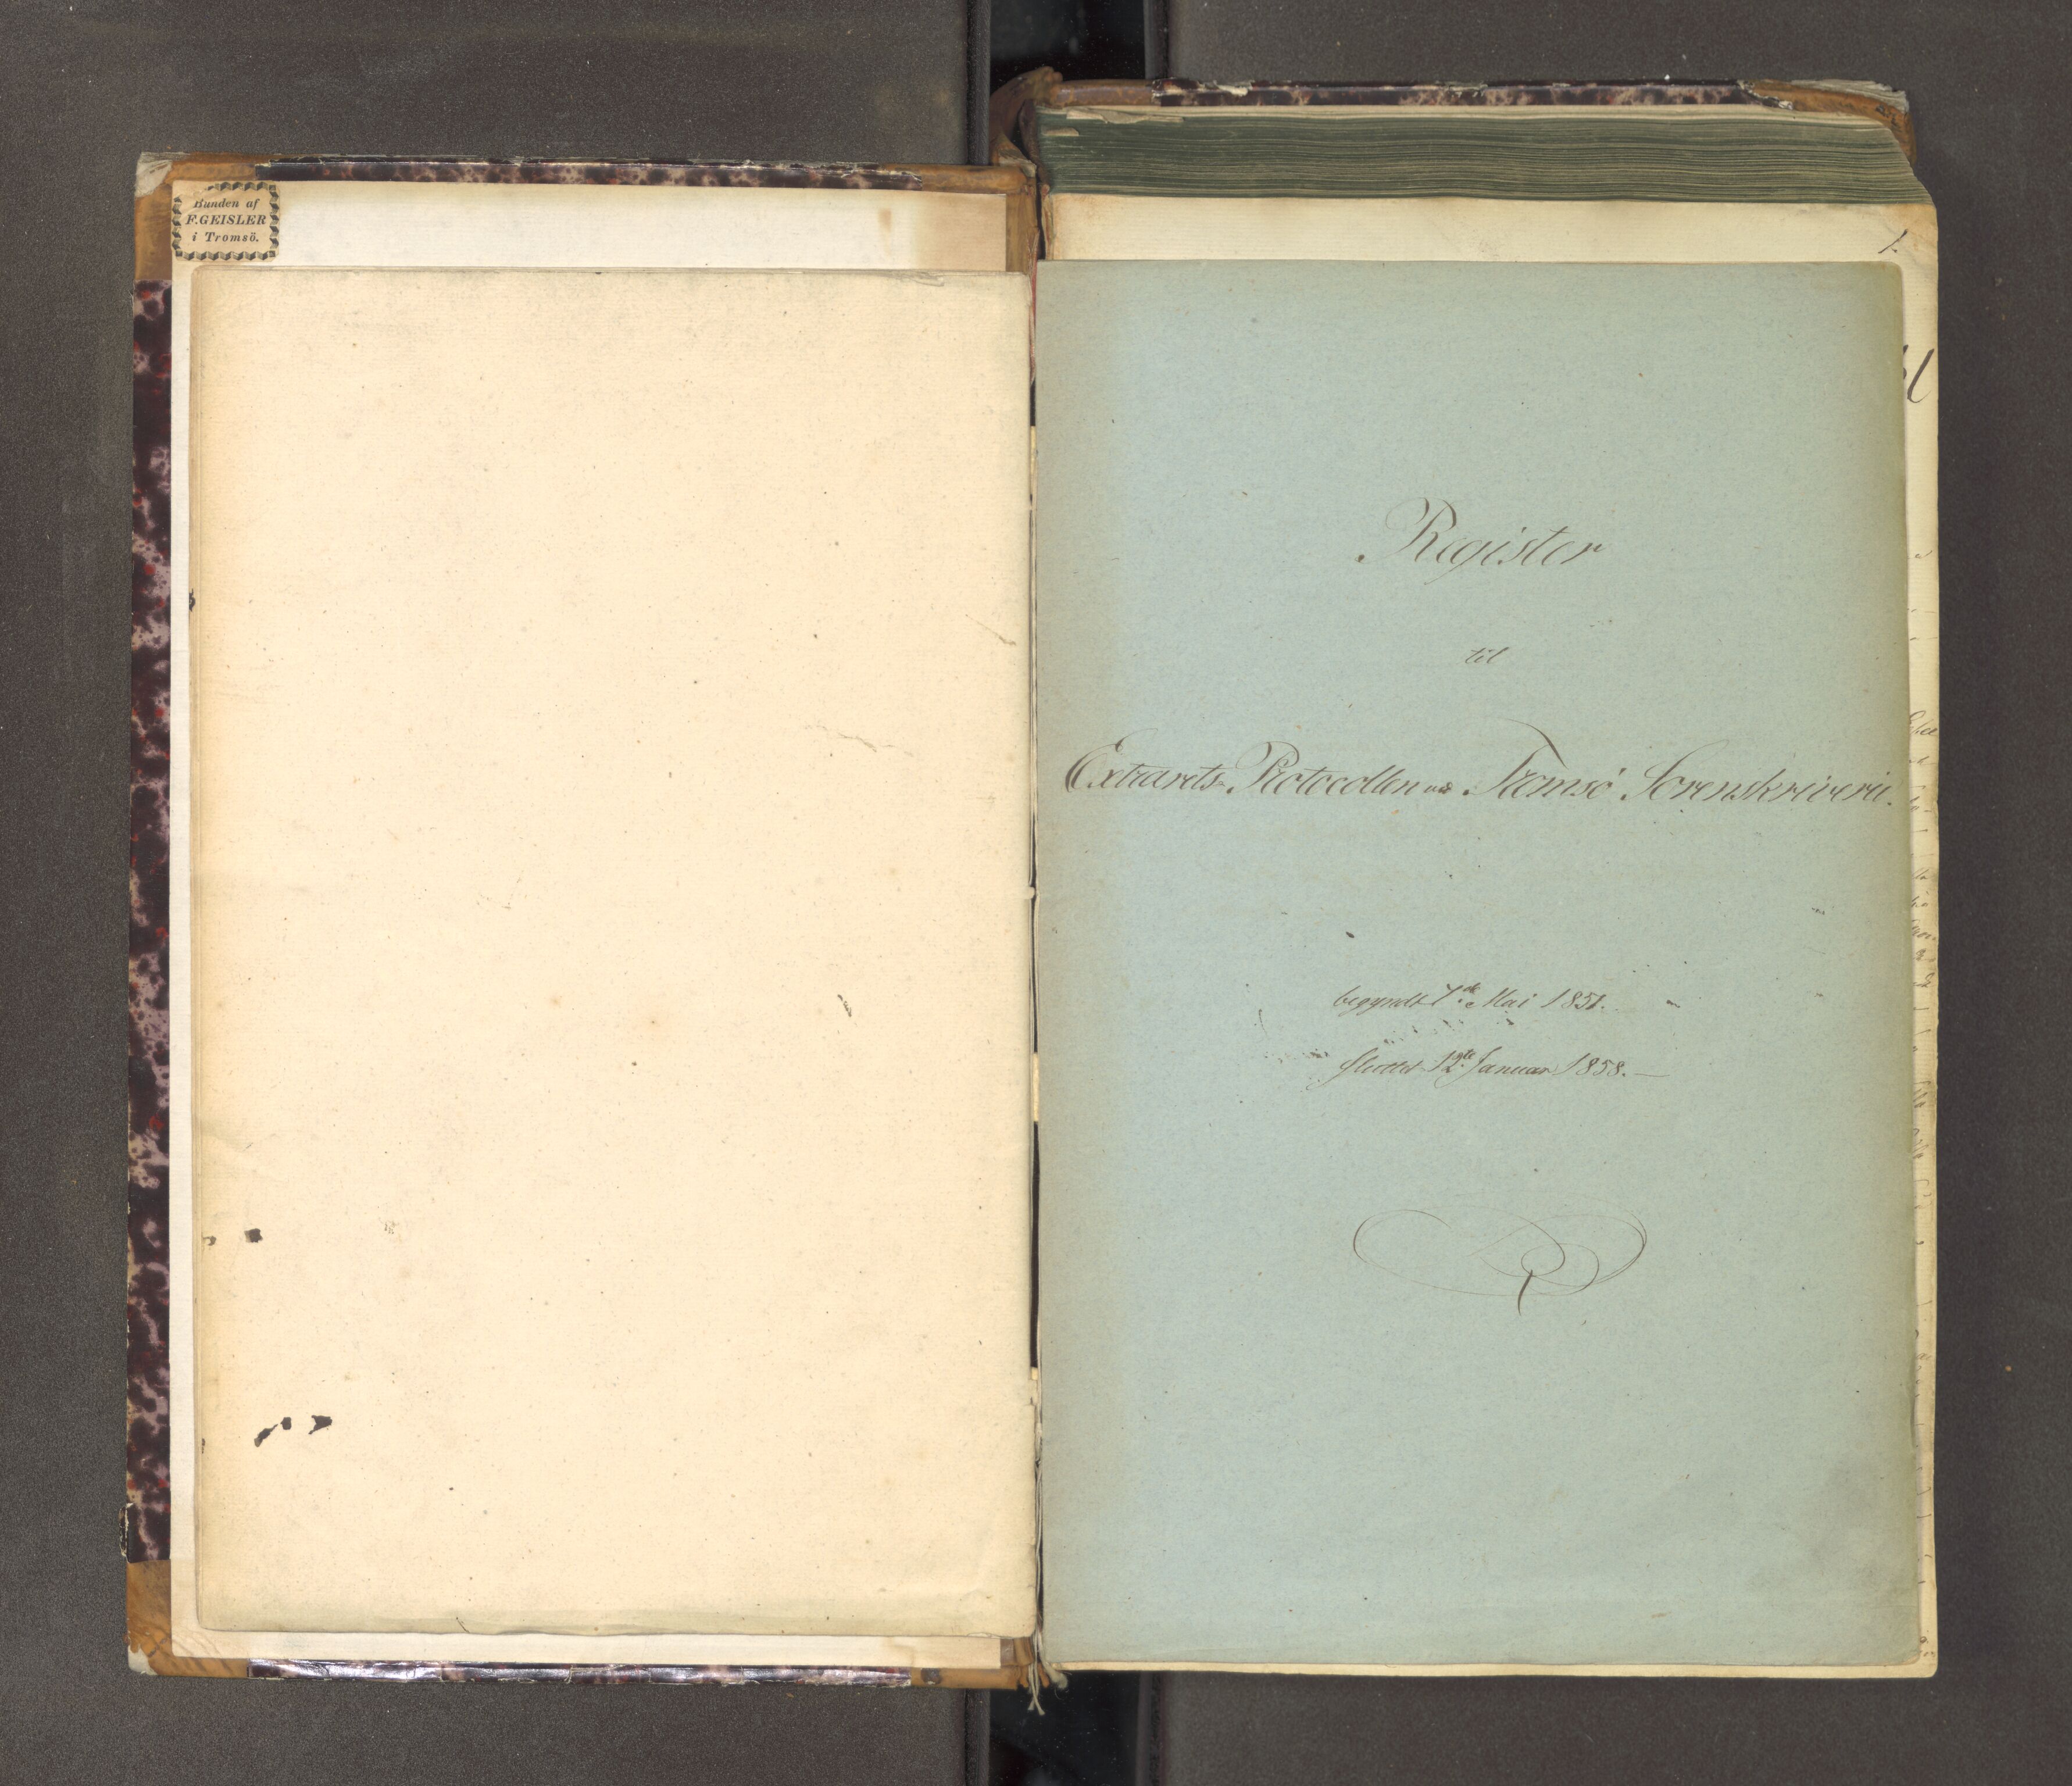 Bunden af
F. GEISLER
i Tromsö.
1.
Register
til
Extrarets-Protocollen ved Tromsö Sorenskriveri.
begyndt 7de Mai 1851.
sluttet 12te Januar 1858. —